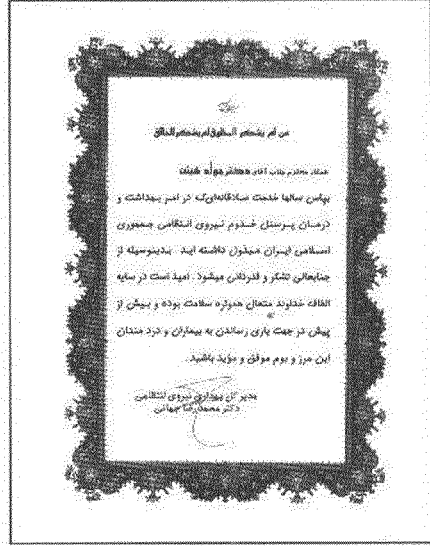 من لم یشکر المخلوق لم یشکر الخالق
همکار محترم جناب آقای دکتر
بپاس سالها خدمت صادقانه‌ای که در امر بهداشت و
درمان پرسنل خدوم نیروی انتظامی جمهوری
اسلامی ایران مبذول داشته اید . بدینوسیله از
جنابعالی تشکر و قدردانی میشود . امید است در سایه
الطاف خداوند متعال همواره سلامت بوده و بیش از
پیش در جهت یاری رساندن به بیماران و درد مندان
این مرز و بوم موفق و مؤید باشید .
مدیر کل بهداری نیروی انتظامی
دکتر محمدرضا جهانی